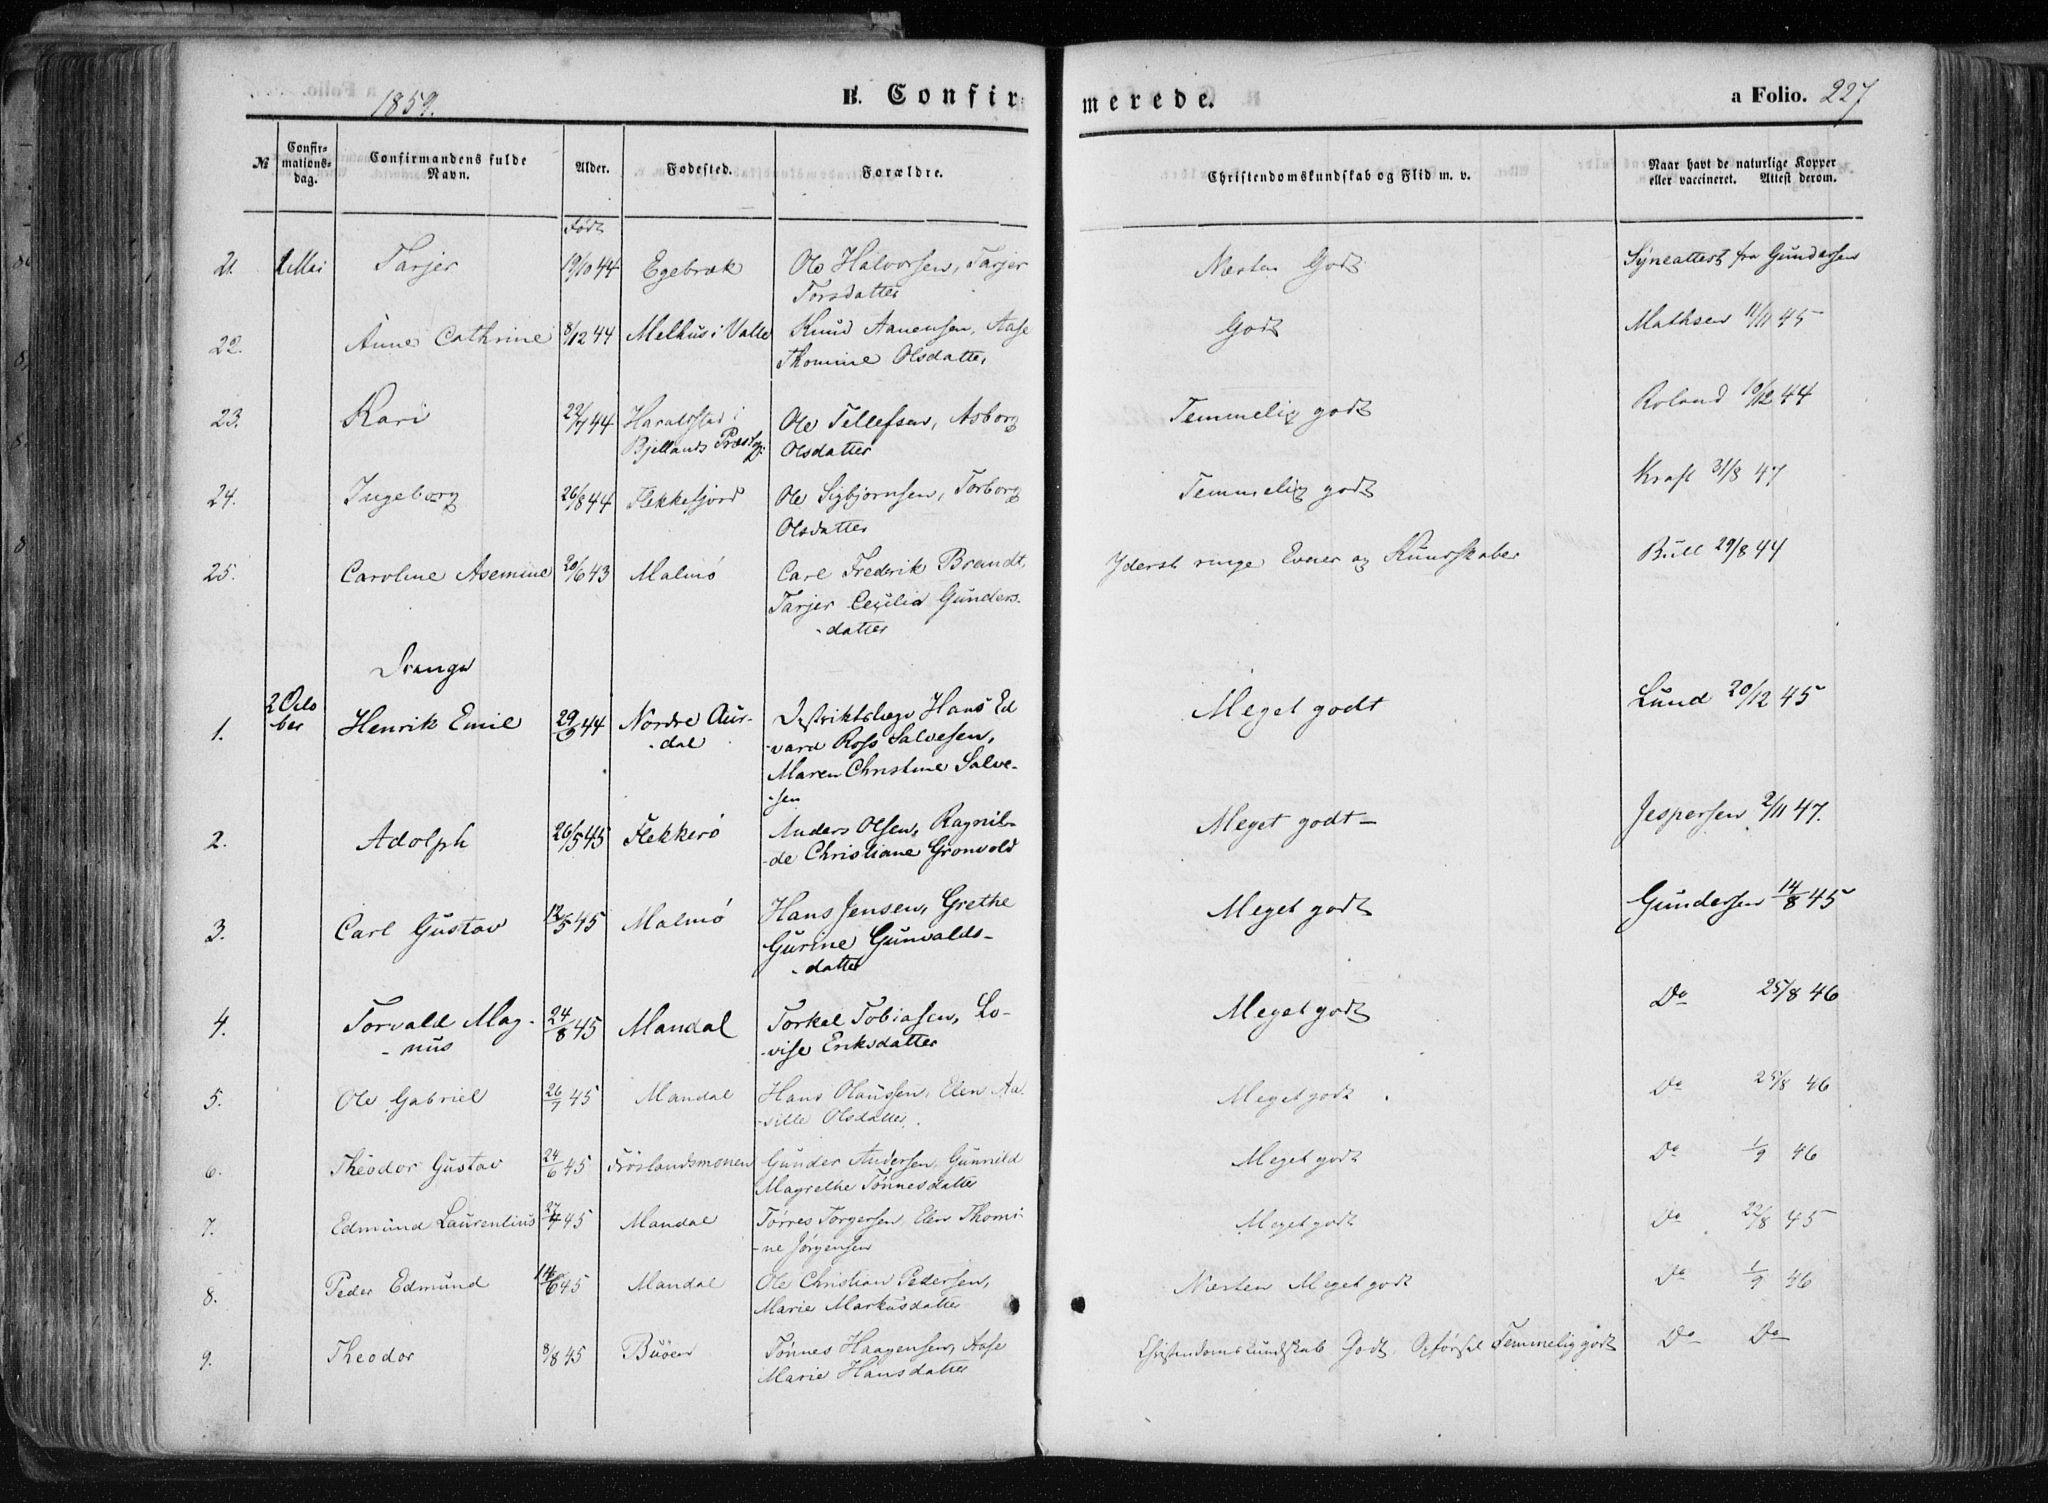 1859. B. Confirmerede. a Folio. 227
№ Confirmationsdag. Confirmandens fulde Navn. Alder. Fødested. Forældre. Christendomskundskab og Flid m. v. Naar havt de naturlige Kopper eller vaccineret. Attest derom.
Født
21. 1 Mai Tarjer 19/10 44 Egebræk Ole Halvorsen, Tarjer Næsten Godt Syneattest fra Gundersen
Torsdatter
22. Anne Cathrine 8/12 44 Melhus i Valle Knud Aanensen, Aase Godt Mathsen 11/11 45
Thomine Olsdatter,
23. Kari 22/7 44 Haraldstad i Ole Tellefsen, Asborg Temmelig godt Roland 10/12 44
Bjellands Præstg: Olsdatter
24. Ingeborg 26/8 44 Flekkefjord Ole Sigbjørnsen, Torborg Temmelig godt Kraft 31/8 47
Olsdatter
25. Caroline Asemine 20/6 43 Malmø Carl Frederik Brandt, Yderst ringe Evner og Kundskaber Bull 29/8 44
Tarjer Cecilia Gunders-
-datter
Drenge
1. 2 Octo Henrik Emil 29/9 44 Nordre Aur- Distriktslæge Hans Ed Meget godt Lund 20/12 45
ber -dal -vard Ross Salvesen,
Maren Christine Salve-
-sen
2. Adolph 26/5 45 Flekkerø Anders Olsen, Ragnil- Meget godt- Jespersen 2/11 47.
-de Christiane Gronvold
3. Carl Gustav 12/5 45 Malmø Hans Jensen, Grethe Meget godt Gundersen 14/8 45
Gurine Gunvalds-
-datter
4. Torvald Mag- 24/8 45 Mandal Torkel Tobiasen, Lo- Meget godt Do 25/8 46
-nus -vise Eriksdatter
5. Ole Gabriel 26/7 45 Mandal Hans Olaussen, Elen Meget godt Do 25/8 46
-sille Olsdatter.
6. Theodor Gustav 24/6 45 Frøslandsmonen Gunder Andersen, Gunnild Meget godt Do 1/9 46
Magrethe Tønnesdatter
7. Edmund Laurentius 27/7 45 Mandal Tørres Torgersen, Elen Thomi- Meget godt Do 22/8 45
-ne Jørgensen
8. Peder Edmund 14/6 45 Mandal Ole Christian Pedersen, Næsten Meget godt Do 1/9 46
Marie Markusdatter
9. Theodor 8/8 45 Buøen Tønnes Haagensen, Aase Christendomskundskab Godt. Opførsel Temmelig godt Do Do
Marie Hansdatter